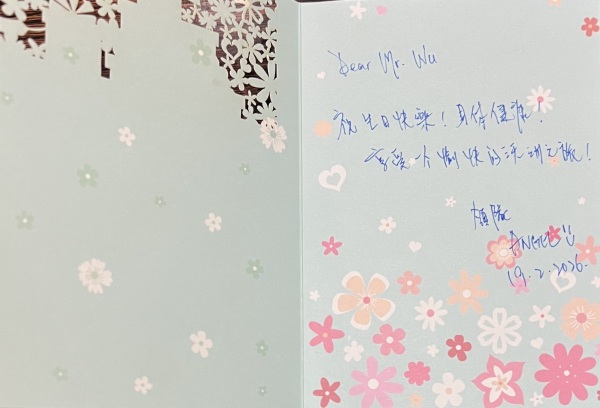 Dear Mr. Wu
祝生日快樂！身体健康！
享受个愉快的活动之旅！
ANGEL
19.2.2026.